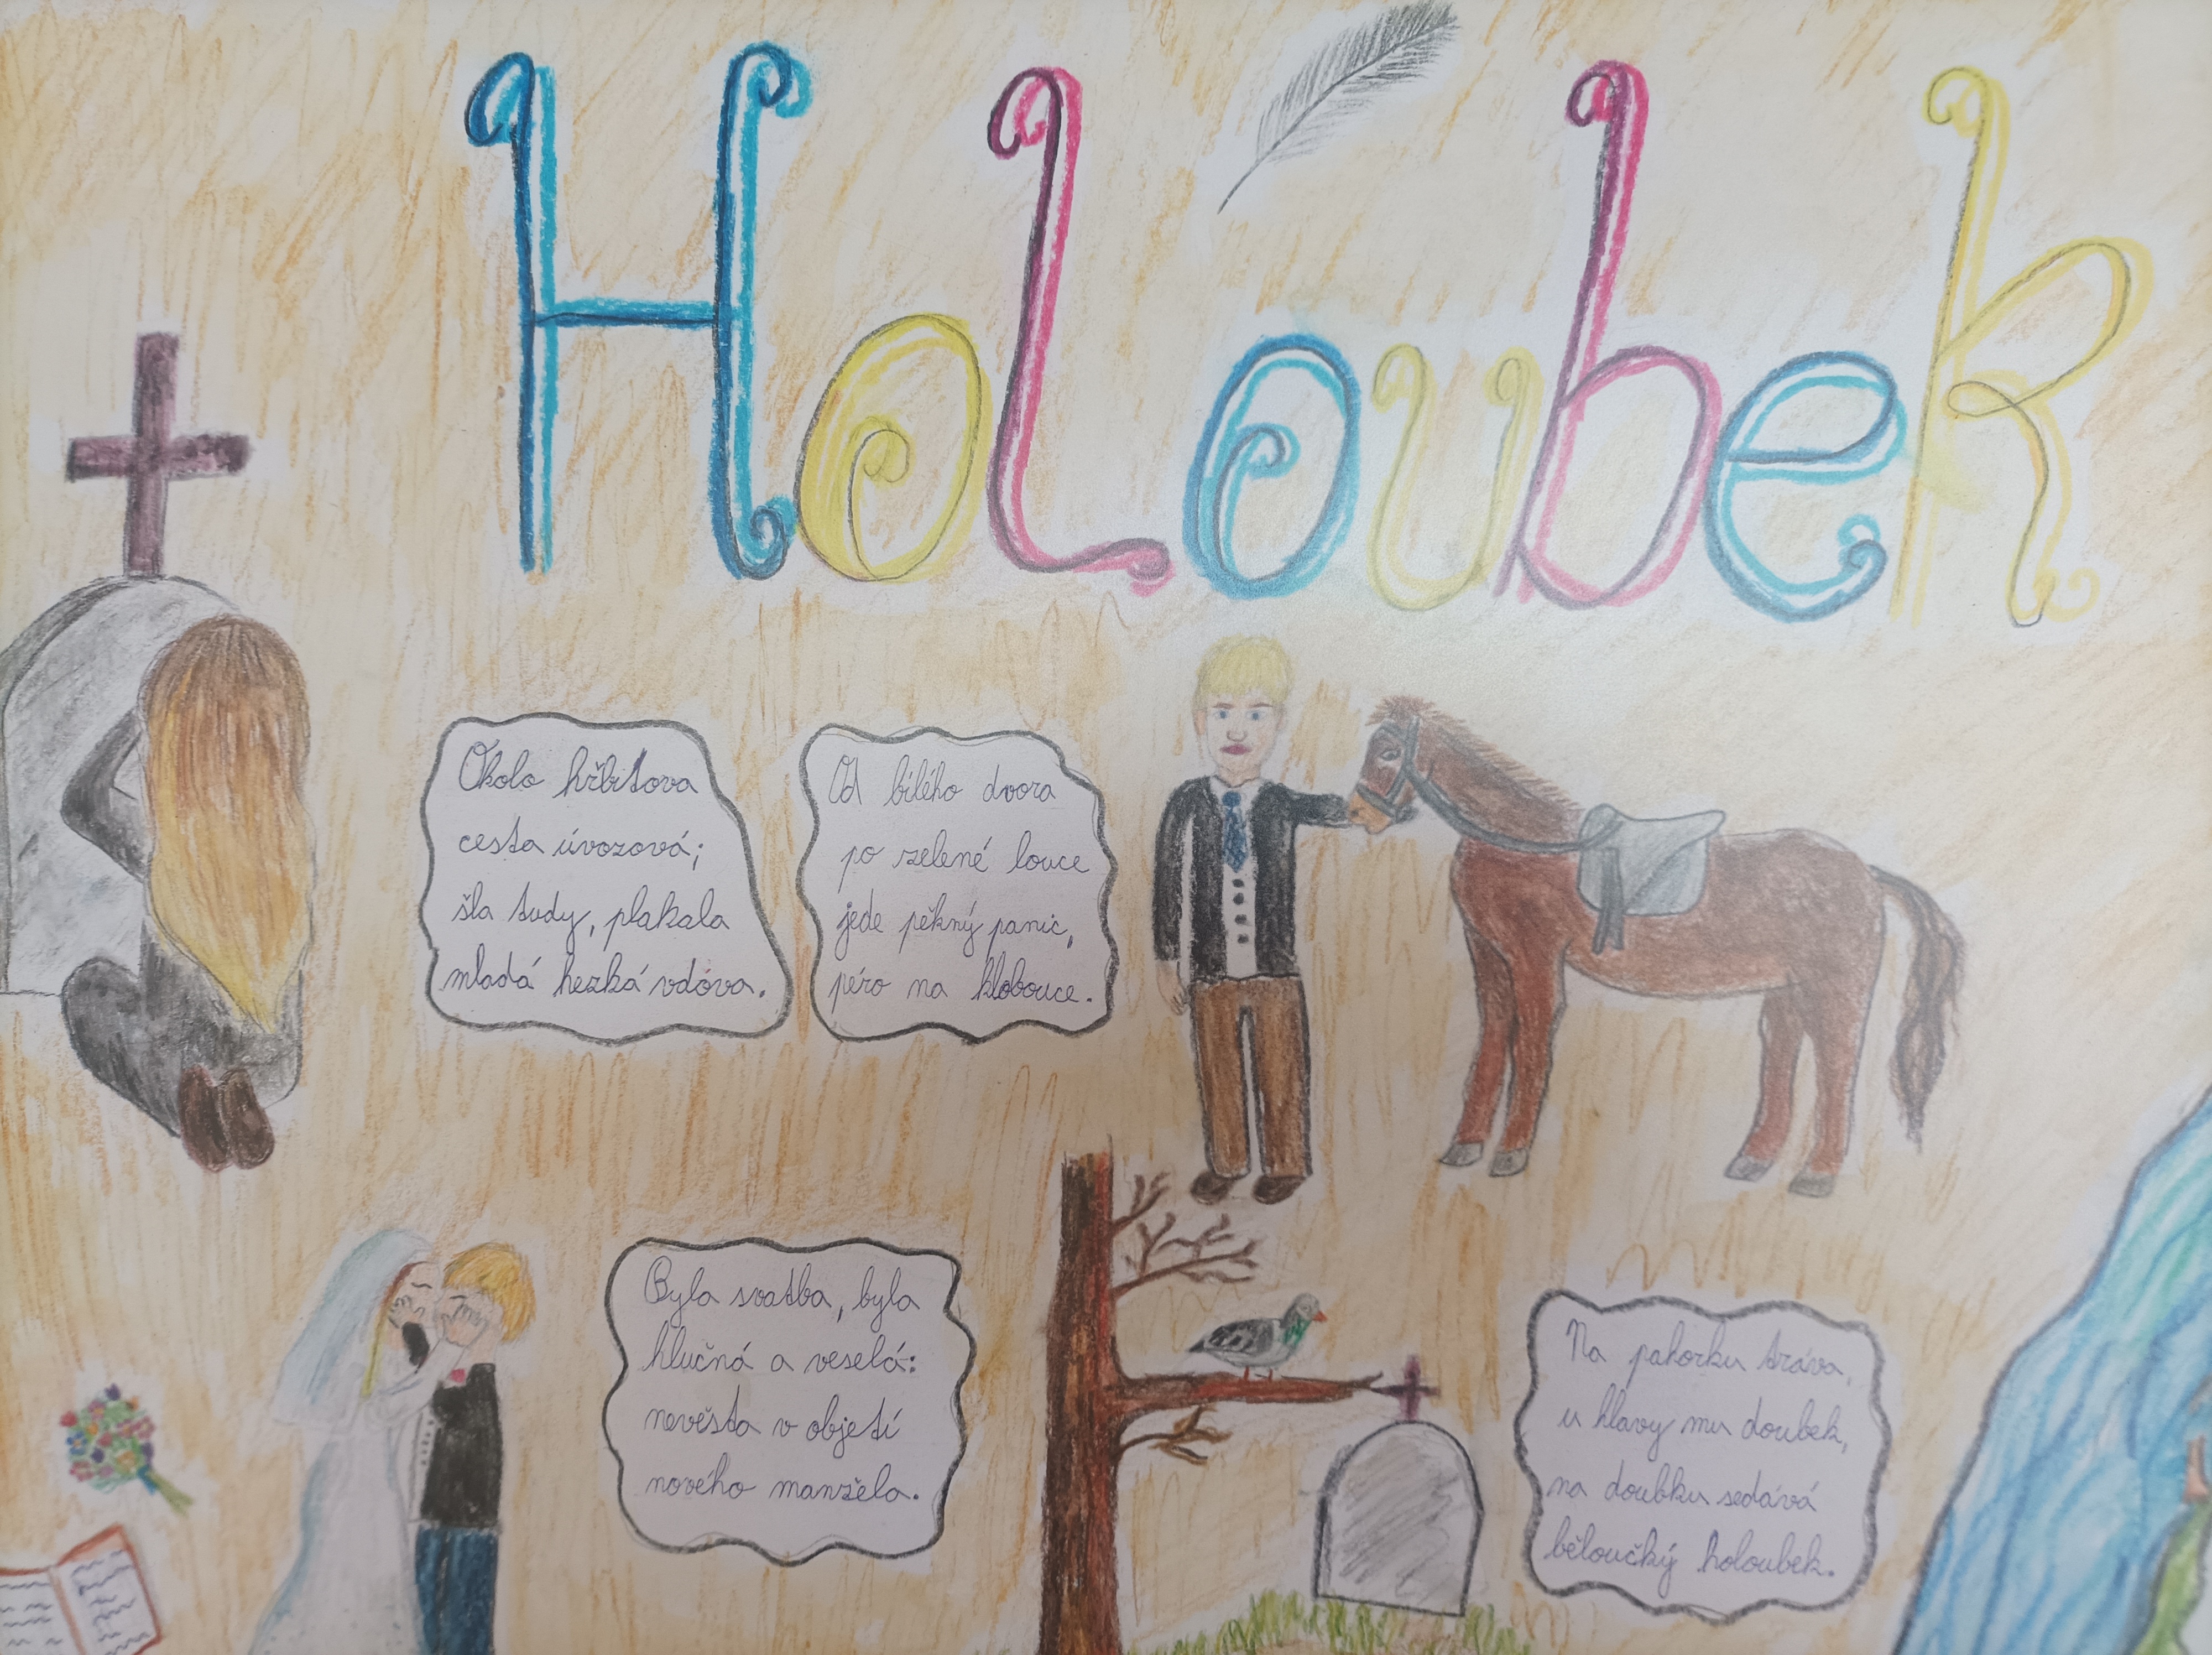 HoLoubek
Okolo hřbitova
cesta úvozová;
šla tudy, plakala
mladá hezká vdova.
Od bílého dvora
po zelené louce
jede pěkný panic,
péro na klobouce.
Byla svatba, byla
hlučná a veselá:
nevěsta v objetí
nového manžela.
Na pahorku tráva,
u hlavy mu doubek,
na doubku sedává
běloučký holoubek.